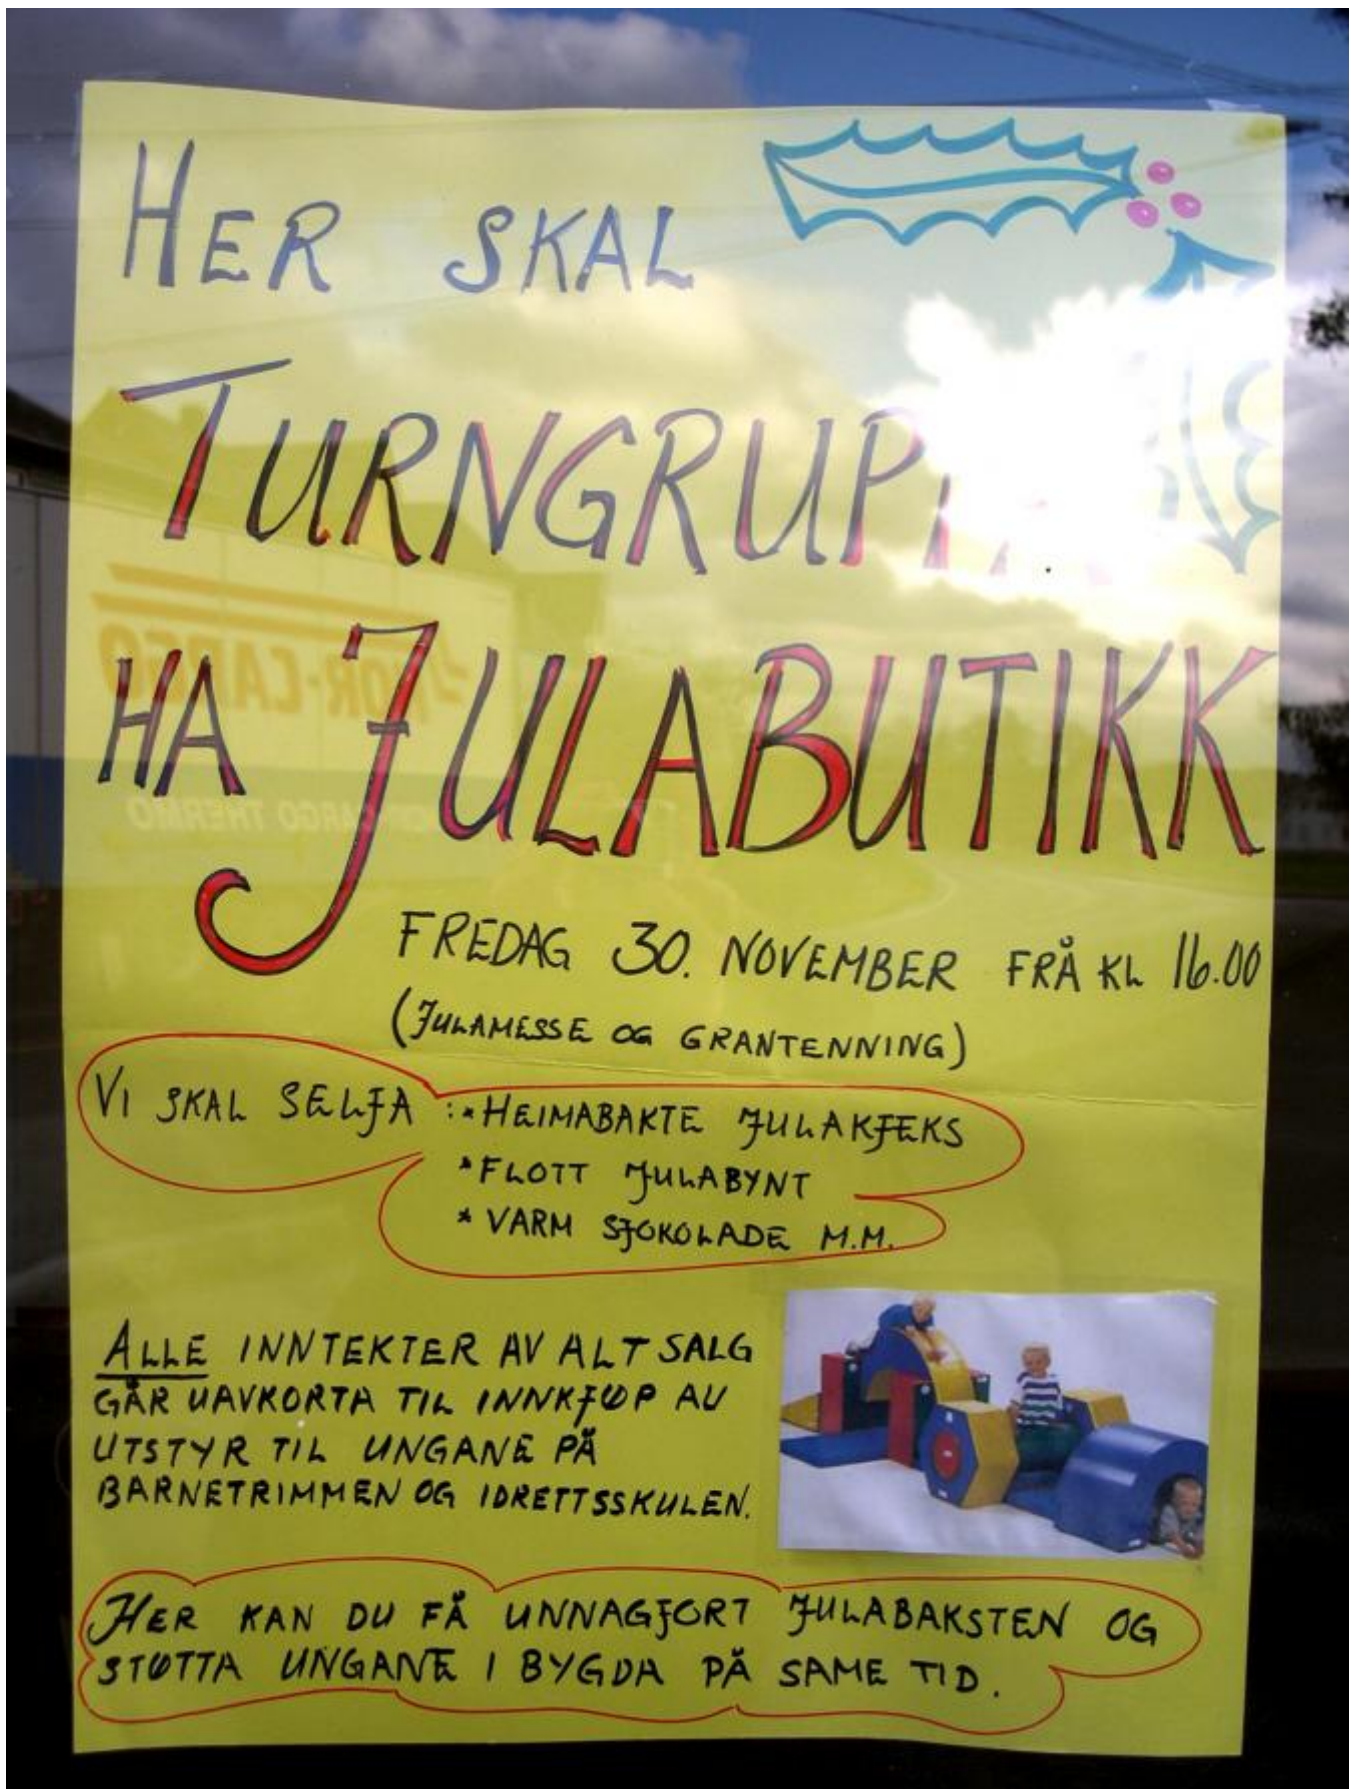 HER SKAL
TURNGRUPPA
HA JULABUTIKK
FREDAG 30. NOVEMBER FRÅ KL 16.00
(JULAMESSE OG GRANTENNING)
VI SKAL SELJA : * HEIMABAKTE JULAKJEKS
* FLOTT JULABYNT
* VARM SJOKOLADE M.M.
ALLE INNTEKTER AV ALT SALG
GÅR UAVKORTA TIL INNKJØP AV
UTSTYR TIL UNGANE PÅ
BARNETRIMMEN OG IDRETTSSKULEN.
HER KAN DU FÅ UNNAGJORT JULABAKSTEN OG
STØTTA UNGANE I BYGDA PÅ SAME TID.
NOR-CARGO
CARGO THERMO